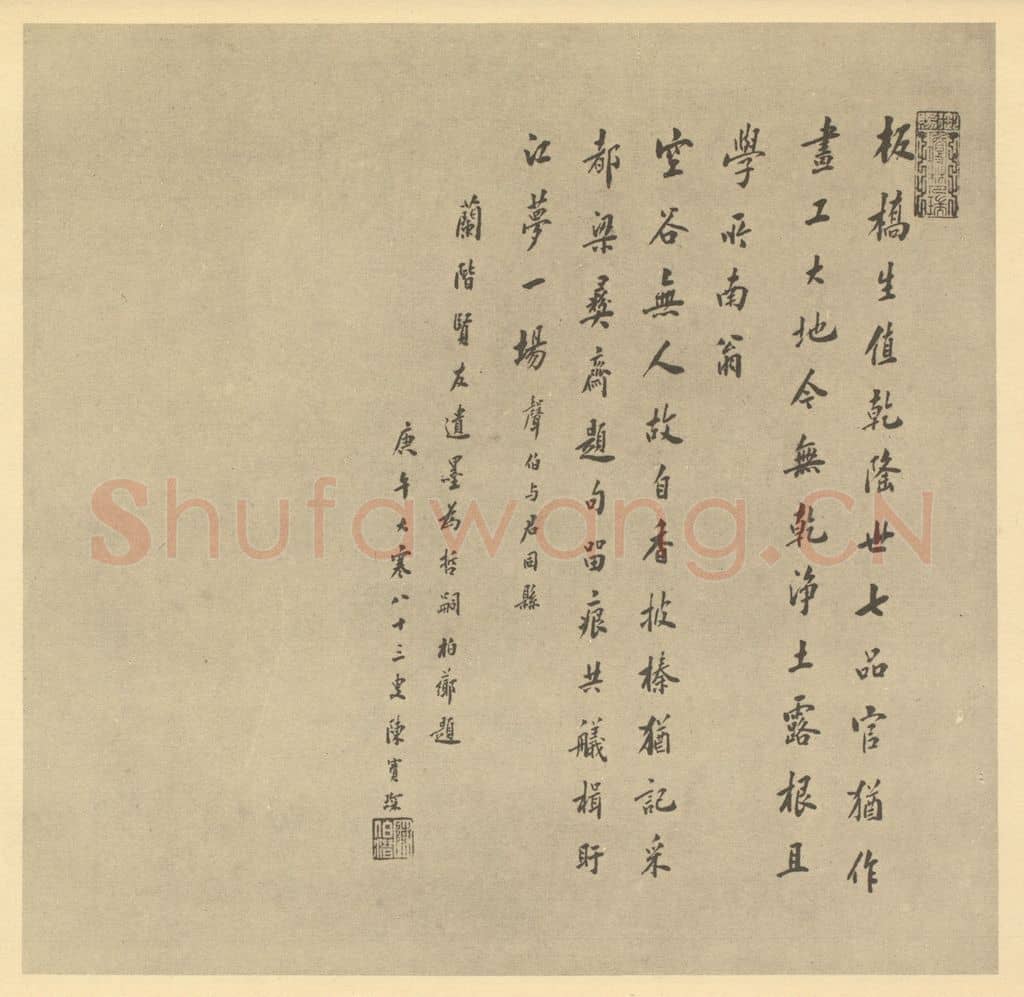 板橋生值乾隆世七品官猶作
畫工大地令無乾淨土露根且
學所南翁
空谷無人故自香披榛猶記采
都梁彞齋題句留痕共艤楫盱
江夢一場 聲伯与君同縣
蘭階賢友遺墨為哲嗣柏薌題
庚午大寒八十三叟陳寶琛
陳伯潛
Shufawang.CN